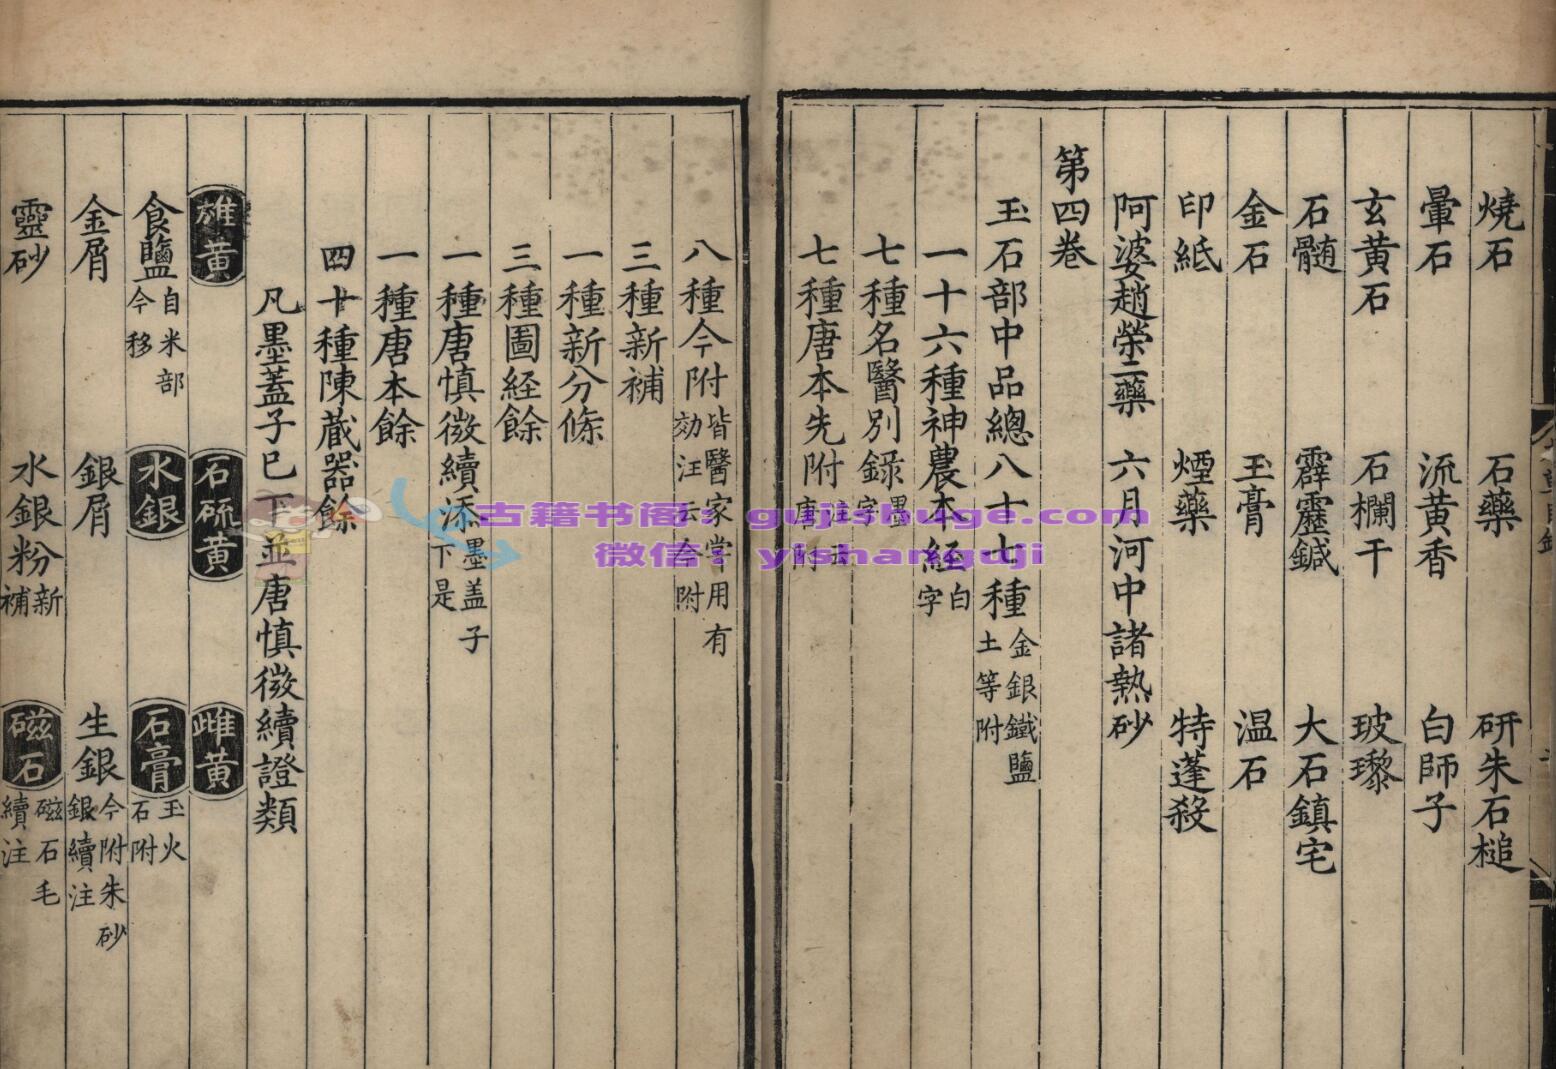 燒石 石藥 研朱石槌
暈石 流黄香 白師子
玄黄石 石欄干 玻瓈
石髓 霹靂鍼 大石鎮宅
金石 玉膏 温石
印紙 煙藥 特蓬殺
阿婆趙榮二藥 六月河中諸熱砂
第四卷
玉石部中品總八十七種 金銀鐵鹽土等附
一十六種神農本經 白字
七種名醫別錄 墨字
七種唐本先附 注云唐附
八種今附 皆醫家嘗用有効注云今附
三種新補
一種新分條
三種圖經餘
一種唐慎微續添 墨盖子下是
一種唐本餘
四十種陳藏器餘
凡墨蓋子已下並唐慎微續證類
雄黄 石硫黄 雌黄
食鹽 自米部今移 水銀 石膏 玉火石附
金屑 銀屑 生銀 今附朱砂銀續注
靈砂 水銀粉 新補 磁石 磁石毛續注
古籍书阁：gujishuge.com
微信：yishanguji